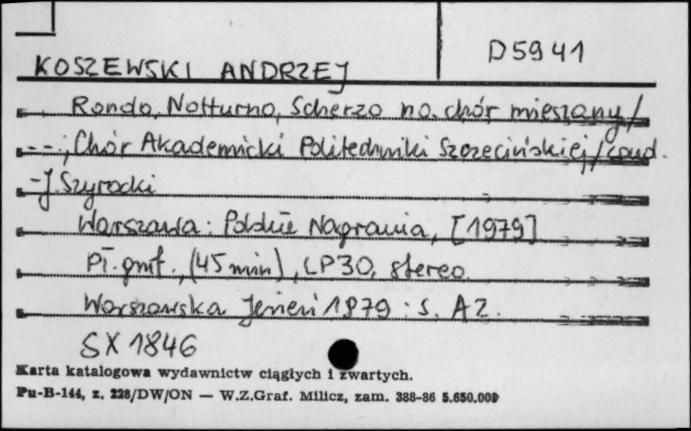 D5941
KOSZEWSKI ANDRZEJ
Rondo, Notturno, Scherzo na chór mieszany/
--; Chór Akademicki Politechniki Szczecińskiej/cond.
-J. Szyrocki
Warszawa: Polskie Nagrania, [1979]
Pł. gmf., (45 min), LP30, stereo
Warszawska Jesień 1979 : s. A2.
SX 1846
Karta katalogowa wydawnictw ciągłych i zwartych.
Pu-B-144, z. 228/DW/ON — W.Z.Graf. Milicz, zam. 388-86 5.650.000